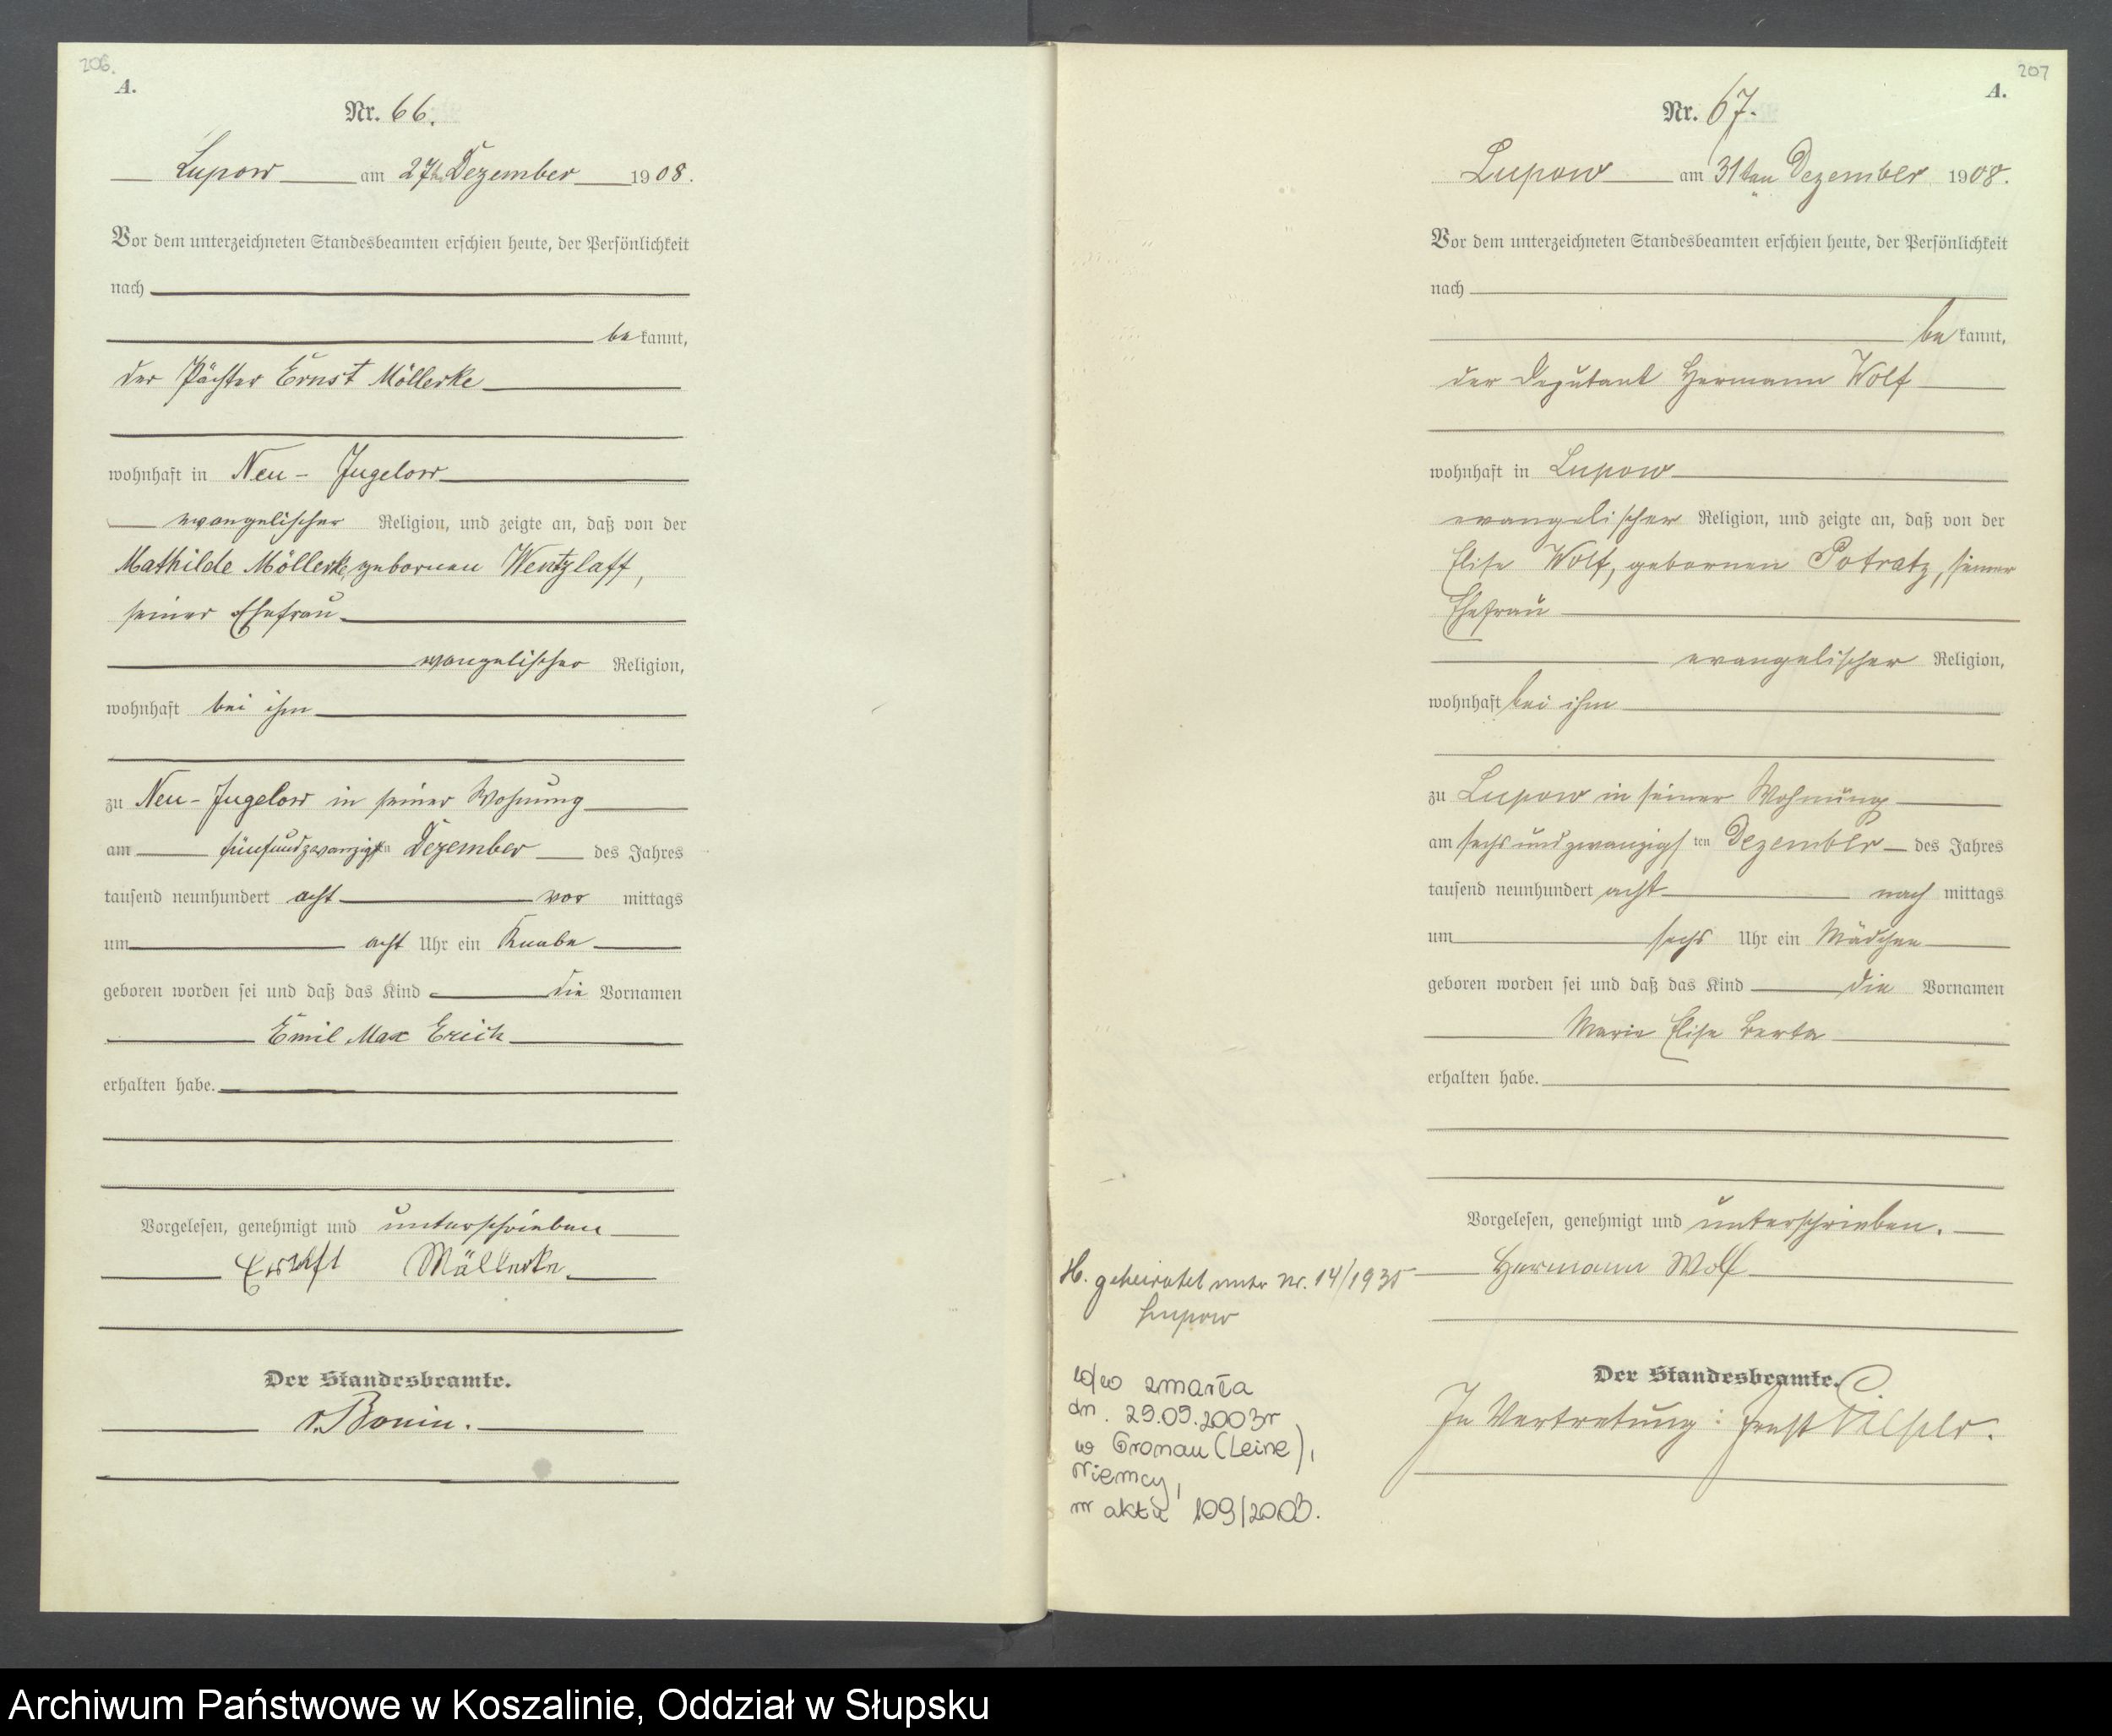 206.
A.
Nr. 66.
Lupow am 27ten Dezember 1908.
Vor dem unterzeichneten Standesbeamten erschien heute, der Persönlichkeit
nach
bekannt,
der Pächter Ernst Möllerke
wohnhaft in Neu-Jugelow
evangelischer Religion, und zeigte an, daß von der
Mathilde Möllerke, gebornen Wentzlaff,
seiner Ehefrau
evangelischer Religion,
wohnhaft bei ihm
zu Neu-Jugelow in seiner Wohnung
am fünfundzwanzigsten Dezember des Jahres
tausend neunhundert acht vor mittags
um acht Uhr ein Knabe
geboren worden sei und daß das Kind die Vornamen
Emil Max Erich
erhalten habe.
Vorgelesen, genehmigt und unterschrieben
Ernst Möllerke
Der Standesbeamte.
v. Bonin.
207
A.
Nr. 67.
Lupow am 31ten Dezember 1908.
Vor dem unterzeichneten Standesbeamten erschien heute, der Persönlichkeit
nach
bekannt,
der Deputant Hermann Wolf
wohnhaft in Lupow
evangelischer Religion, und zeigte an, daß von der
Elise Wolf, gebornen Potratz, seiner
Ehefrau
evangelischer Religion,
wohnhaft bei ihm
zu Lupow in seiner Wohnung
am sechsundzwanzigsten Dezember des Jahres
tausend neunhundert acht nach mittags
um sechs Uhr ein Mädchen
geboren worden sei und daß das Kind die Vornamen
Marie Elise Berta
erhalten habe.
Vorgelesen, genehmigt und unterschrieben.
Hermann Wolf
Der Standesbeamte.
In Vertretung: Ernst
H. geheiratet unter Nr. 14/1935
Lupow
w/w zmarła
dn. 29.09.2003r
w Gronau (Leine),
Niemcy,
nr aktu 109/2003.
Archiwum Państwowe w Koszalinie, Oddział w Słupsku